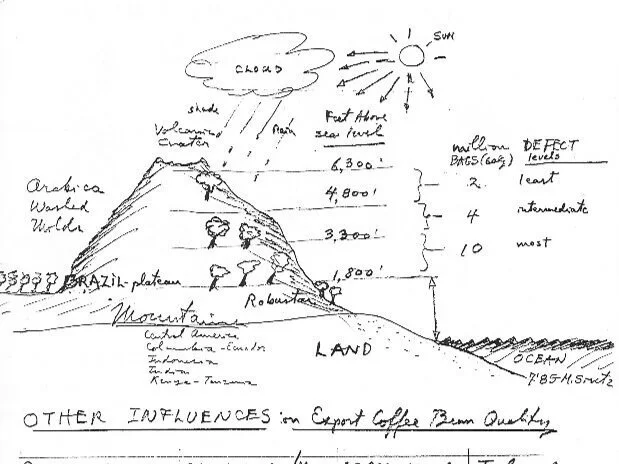 SUN
CLOUD
shade
Rain
Volcanic
Crater
Feet Above
sea level
6,300'
4,800'
3,300'
1,800'
million DEFECT
BAGS (60kg) levels
2 least
4 intermediate
10 most
Arabica
Washed
Milds
BRAZIL-plateau
Robustas
Mountains
Central America
Columbia - Ecuador
Indonesia
India
Kenya - Tanzania
LAND
OCEAN
OTHER INFLUENCES on Export Coffee Bean Quality